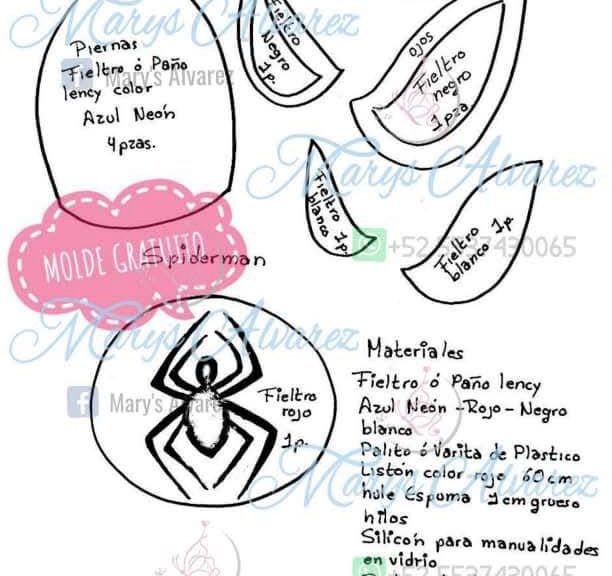 Marys Alvarez
Piernas
Fieltro ó Paño
lency color
Azul Neón
4 pzas.
Mary's Alvarez
Fieltro
Negro
1 p.
ojos
Fieltro
negro
1 pza
Marys Alvarez
Fieltro
blanco 1p.
Fieltro 1p.
blanco
+52 5537430065
MOLDE GRATUITO
Spiderman
Marys Alvarez
Mary's Alvarez
Fieltro
rojo
1p.
Materiales
Fieltro ó Paño lency
Azul Neón - Rojo - Negro
blanco
Palito ó Varita de Plastico
Listón color rojo 60 cm
hule Espuma 1 cm grueso
hilos
Silicón para manualidades
en vidrio
Marys Alvarez
+52 5537430065